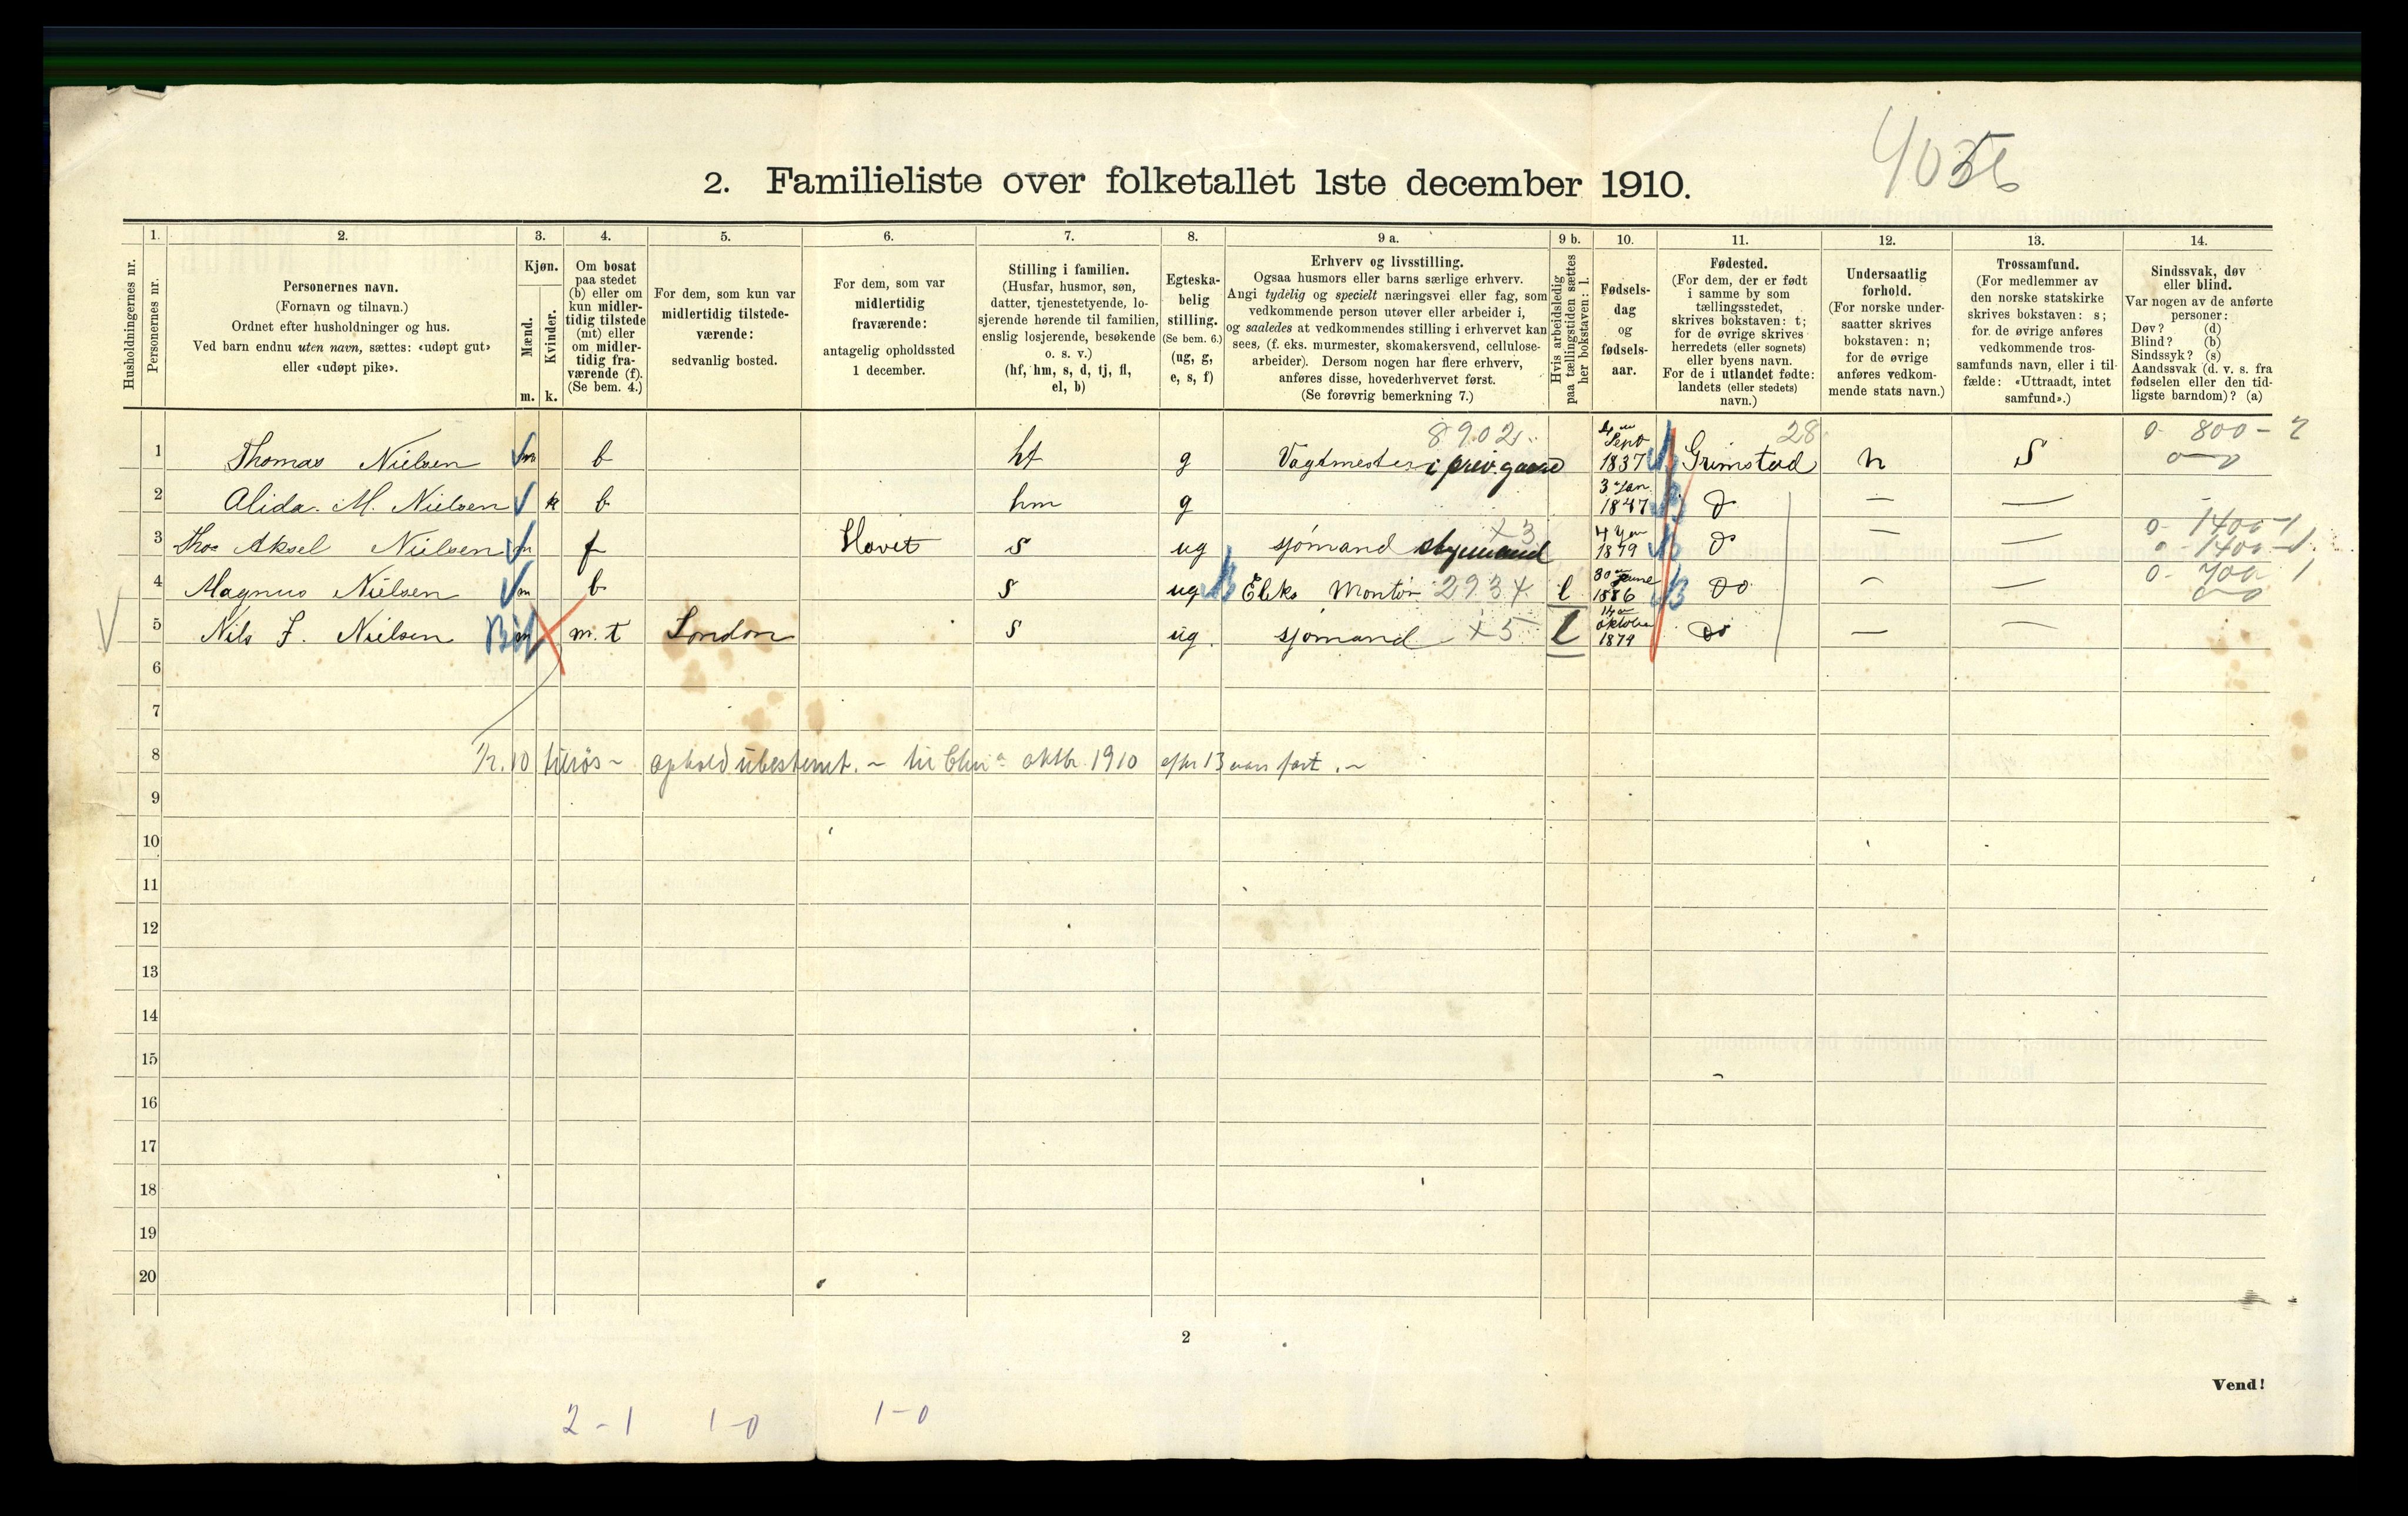 2. Familieliste over folketallet 1ste december 1910.
Husholdningernes nr.
1.
Personernes nr.
2.
Personernes navn.
(Fornavn og tilnavn.)
Ordnet efter husholdninger og hus.
Ved barn endnu uten navn, sættes: «udøpt gut»
eller «udøpt pike».
3.
Kjøn.
Mænd.
m.
Kvinder.
k.
4.
Om bosat
paa stedet
(b) eller om
kun midler-
tidig tilstede
(mt) eller
om midler-
tidig fra-
værende (f).
(Se bem. 4.)
5.
For dem, som kun var
midlertidig tilstede-
værende:
sedvanlig bosted.
6.
For dem, som var
midlertidig
fraværende:
antagelig opholdssted
1 december.
7.
Stilling i familien.
(Husfar, husmor, søn,
datter, tjenestetyende, lo-
sjerende hørende til familien,
enslig losjerende, besøkende
o. s. v.)
(hf, hm, s, d, tj, fl,
el, b)
8.
Egteska-
belig
stilling.
(Se bem. 6.)
(ug, g,
e, s, f)
9 a.
Erhverv og livsstilling.
Ogsaa husmors eller barns særlige erhverv.
Angi tydelig og specielt næringsvei eller fag, som
vedkommende person utøver eller arbeider i,
og saaledes at vedkommendes stilling i erhvervet kan
sees, (f. eks. murmester, skomakersvend, cellulose-
arbeider). Dersom nogen har flere erhverv,
anføres disse, hovederhvervet først.
(Se forøvrig bemerkning 7.)
9 b.
Hvis arbeidsledig
paa tællingstiden sættes
her bokstaven: l.
10.
Fødsels-
dag
og
fødsels-
aar.
11.
Fødested.
(For dem, der er født
i samme by som
tællingsstedet,
skrives bokstaven: t;
for de øvrige skrives
herredets (eller sognets)
eller byens navn.
For de i utlandet fødte:
landets (eller stedets)
navn.)
12.
Undersaatlig
forhold.
(For norske under-
saatter skrives
bokstaven: n;
for de øvrige
anføres vedkom-
mende stats navn.)
13.
Trossamfund.
(For medlemmer av
den norske statskirke
skrives bokstaven: s;
for de øvrige anføres
vedkommende tros-
samfunds navn, eller i til-
fælde: «Uttraadt, intet
samfund».)
14.
Sindssvak, døv
eller blind.
Var nogen av de anførte
personer:
Døv? (d)
Blind? (b)
Sindssyk? (s)
Aandssvak (d. v. s. fra
fødselen eller den tid-
ligste barndom)? (a)
8902 28 0- 800- 2
1 Thomas Nielsen m b hf g Vagtmester i priv. gaard Sept 1837 Grimstad n S
2 Alida. M. Nielsen k b hm g 3 Jan 1847 Do — —
x3 0- 1400-1
3 Aksel Nielsen m f Havet s ug sjømand styrmand 4 Jan 1879 Do — — 0 1400-1
4 Magnus Nielsen m b s ug Eleks Montør 2937 l 30 June 1886 Do — — 0- 700 1
5 Nils J. Nielsen m m.t London s ug. sjømand x5 l oktober 1874 Do — —
6
7
8 ophold ubestemt. ~ til Chri a oktbr 1910 efter 13 aars fart. ~
9
10
11
12
13
14
15
16
17
18
19
20
2
Vend!
2-1 1-0 1-0